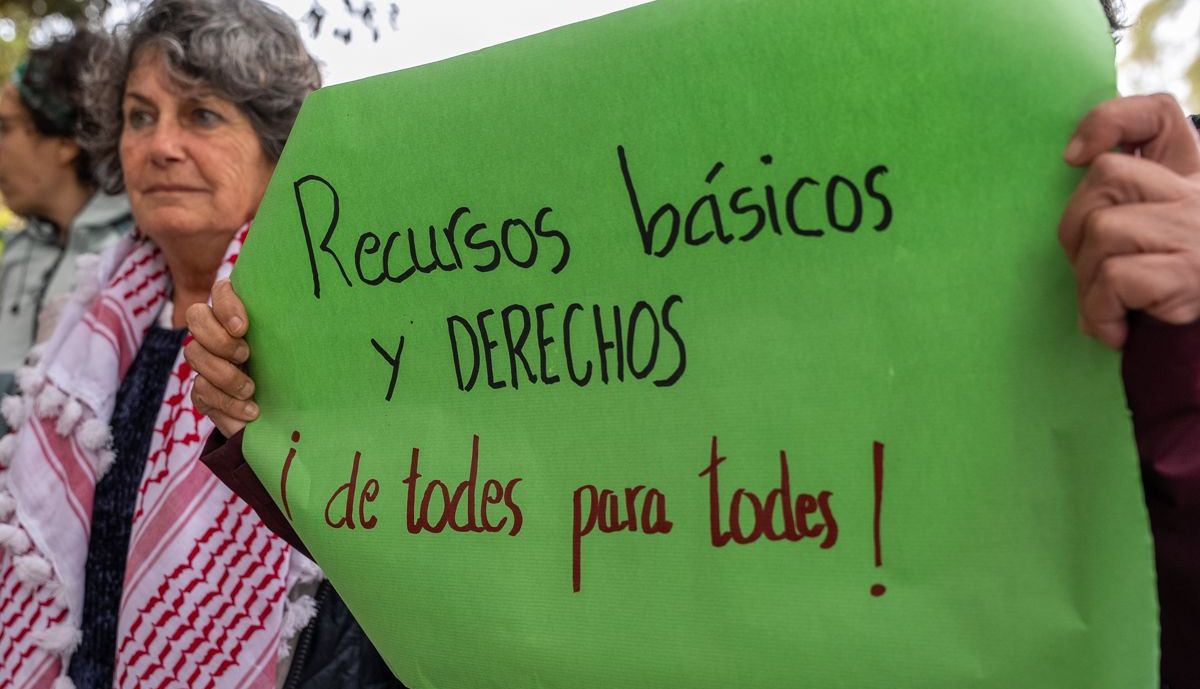 Recursos básicos
y DERECHOS
¡de todes para todes!